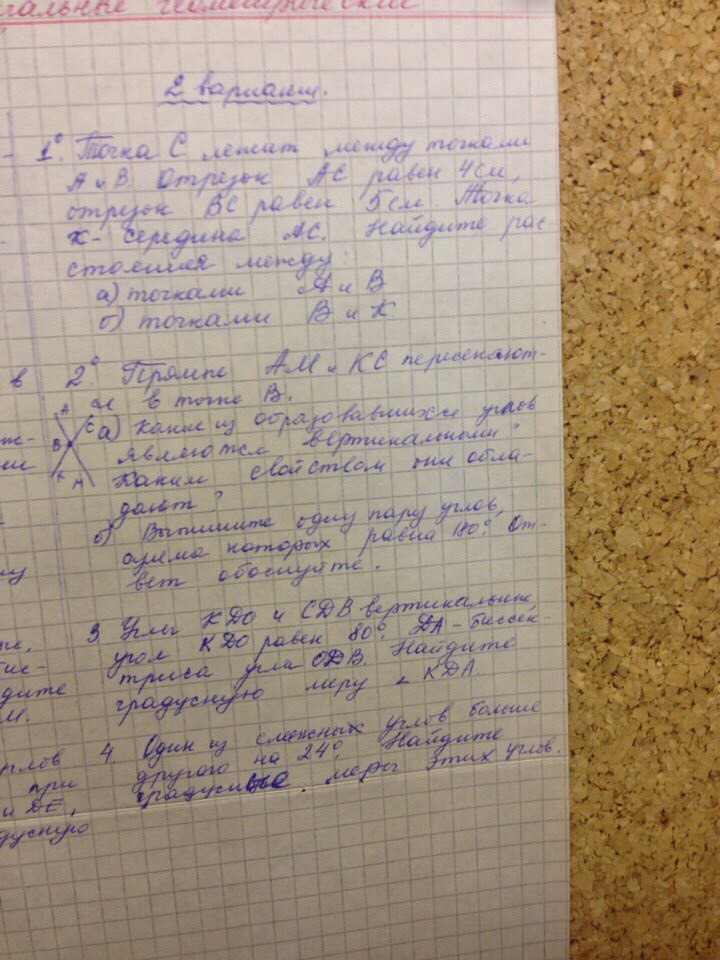 геометрический
2 вариант.
1°. Точка С лежит между точками
А и В. Отрезок АС равен 4 см,
отрезок ВС равен 5 см. Точка
К - середина АС. Найдите рас-
стояния между:
а) точками А и В
б) точками В и К
в 2°. Прямые АМ и КС пересекают-
ся в точке В.
А С В К М
а) Какие из образовавшихся углов
являются вертикальными?
Каким свойством они обла-
дают?
б) Выпишите одну пару углов,
сумма которых равна 180°. От-
вет обоснуйте.
3. Углы КДО и СДВ вертикальные,
угол КДО равен 80°. ДА - биссек-
триса угла ОДВ. Найдите
градусную меру ∠ КДА.
4. Один из смежных углов больше
другого на 24°. Найдите
градусные меры этих углов.